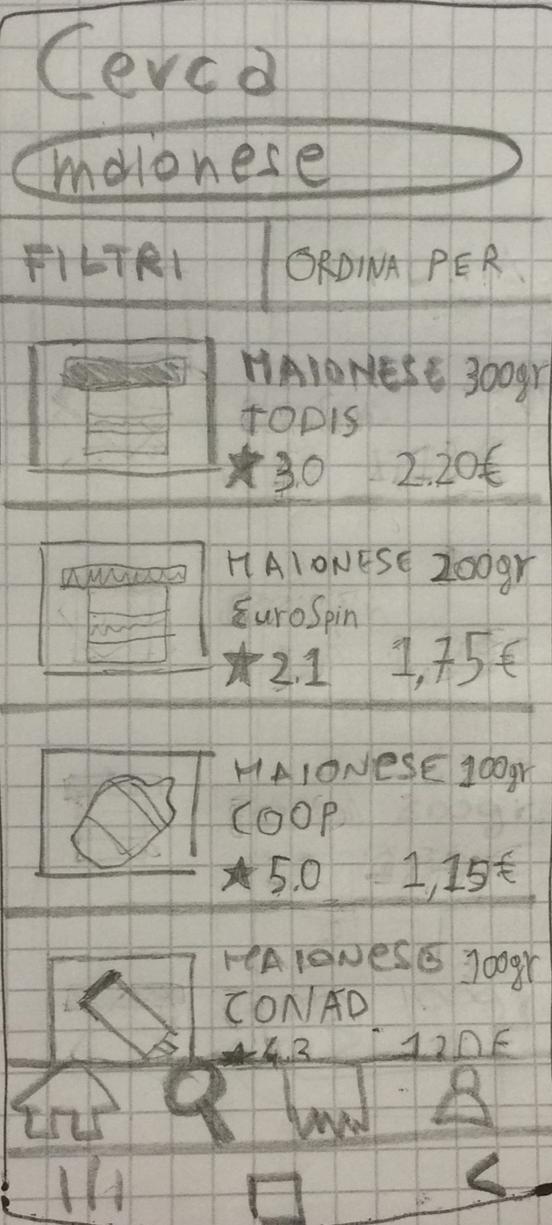 Cerca
maionese
FILTRI ORDINA PER
MAIONESE 300gr
TODIS
★ 3.0 2.20€
MAIONESE 200gr
EuroSpin
★ 2.1 1,75€
MAIONESE 100gr
COOP
★ 5.0 1,15€
MAIONESE 100gr
CONAD
★ 4.3